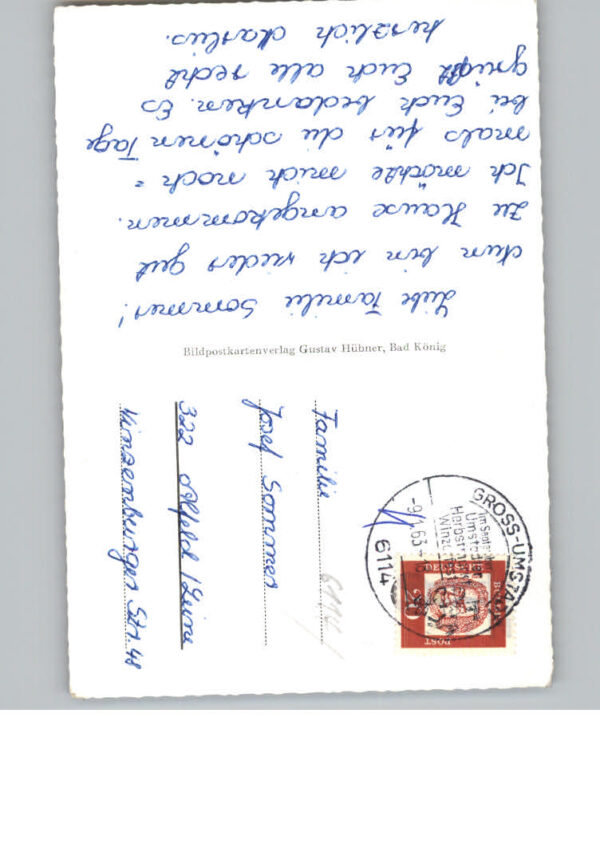 Liebe Familie Sommer!
Nun bin ich wieder gut
zu Hause angekommen.
Ich möchte mich noch =
mals für die schönen Tage
bei Euch bedanken. Es
grüßt Euch alle recht
herzlich
Bildpostkartenverlag Gustav Hübner, Bad König
Familie
Josef Sommer
322 Alfeld / Leine
Winzenburger Str. 48
6114
GROSS-UMSTA
im September
Umstädter
Winze
63
6114
DEUTSCHE
BUNDES
POST
20